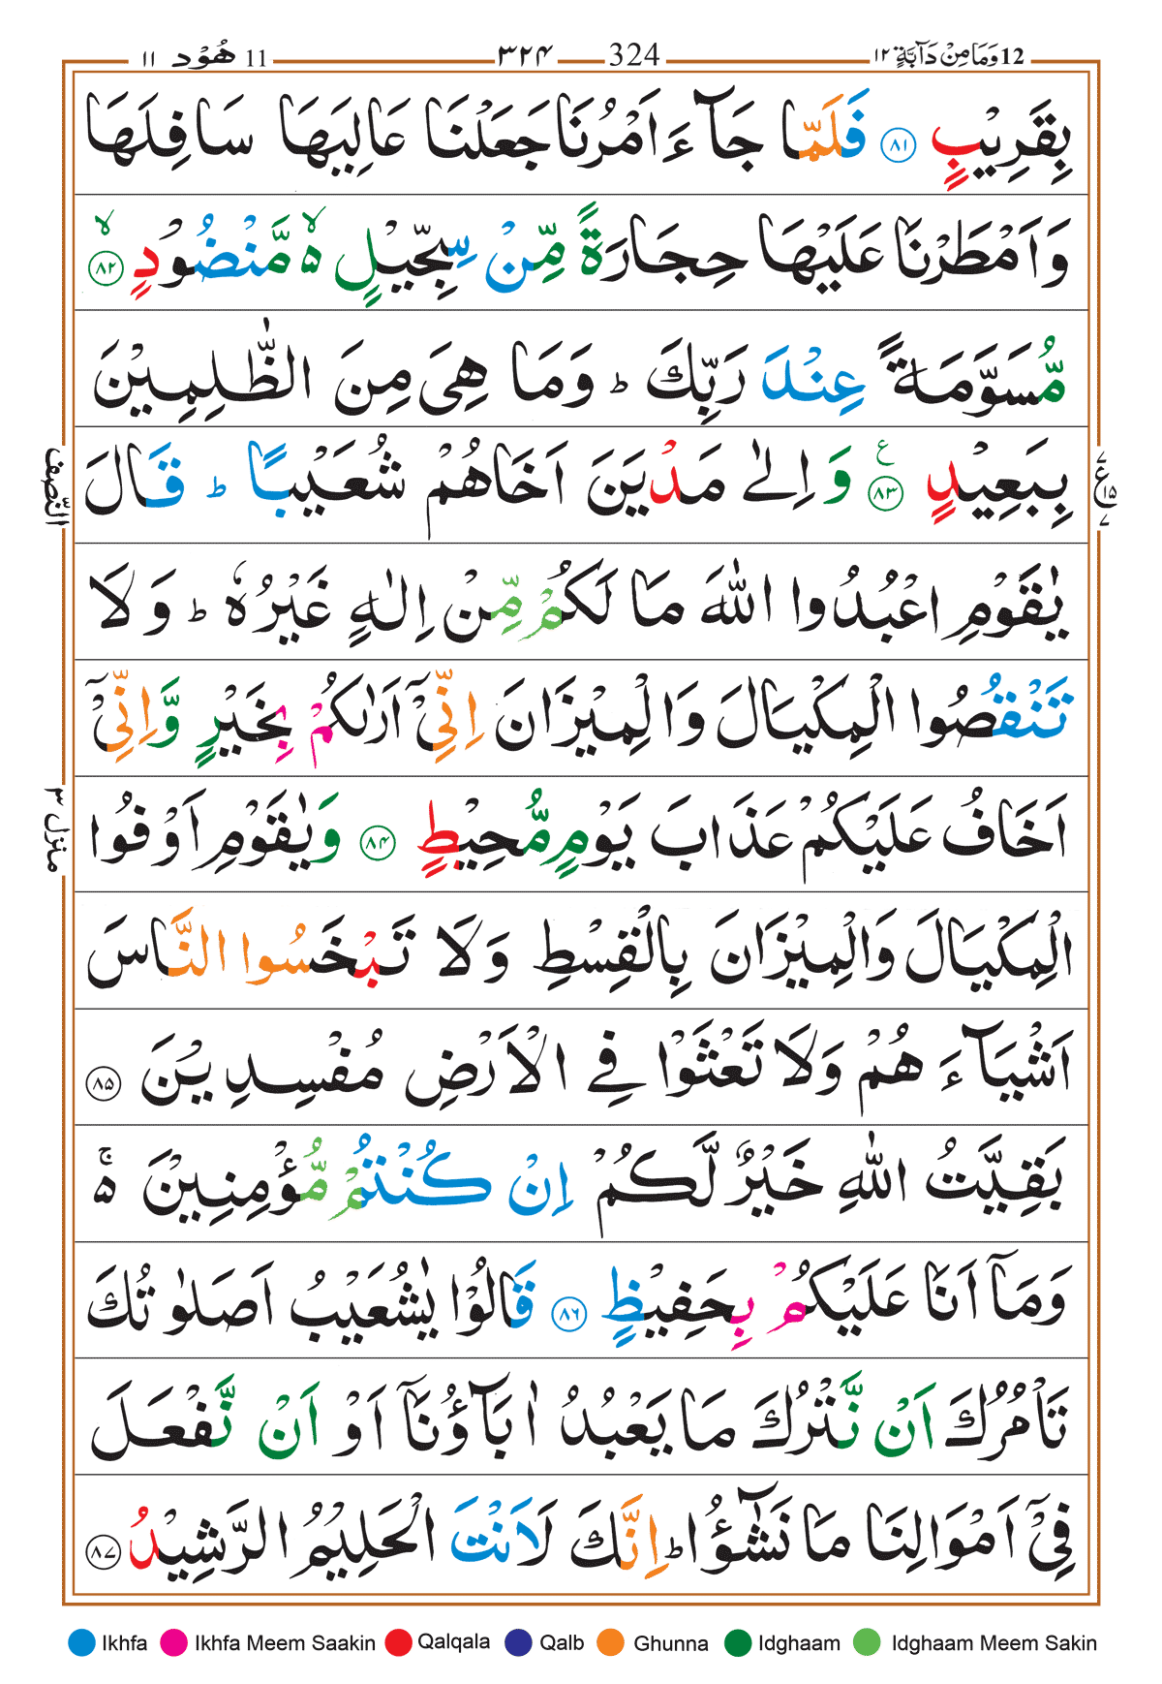 12 وَمَا مِنْ دَآبَّةٍ ١٢ 324 ٣٢٤ 11 هُوْد ١١
بِقَرِيْبٍ ٨١ فَلَمَّا جَآءَ اَمْرُنَا جَعَلْنَا عَالِيَهَا سَافِلَهَا
وَاَمْطَرْنَا عَلَيْهَا حِجَارَةً مِّنْ سِجِّيْلٍ ۙ۬ مَّنْضُوْدٍ ۙ ٨٢
مُّسَوَّمَةً عِنْدَ رَبِّكَ ؕ وَمَا هِىَ مِنَ الظّٰلِمِيْنَ
بِبَعِيْدٍ ٨٣ ع وَ اِلٰى مَدْيَنَ اَخَاهُمْ شُعَيْبًا ؕ قَالَ
يٰقَوْمِ اعْبُدُوا اللّٰهَ مَا لَكُمْ مِّنْ اِلٰهٍ غَيْرُهٗ ؕ وَلَا
تَنْقُصُوا الْمِكْيَالَ وَالْمِيْزَانَ اِنِّىْۤ اَرٰىكُمْ بِخَيْرٍ وَّاِنِّىْۤ
اَخَافُ عَلَيْكُمْ عَذَابَ يَوْمٍ مُّحِيْطٍ ٨٤ وَيٰقَوْمِ اَوْفُوا
الْمِكْيَالَ وَالْمِيْزَانَ بِالْقِسْطِ وَلَا تَبْخَسُوا النَّاسَ
اَشْيَآءَهُمْ وَلَا تَعْثَوْا فِى الْاَرْضِ مُفْسِدِيْنَ ٨٥
بَقِيَّتُ اللّٰهِ خَيْرٌ لَّكُمْ اِنْ كُنْتُمْ مُّؤْمِنِيْنَ ۬ۚ
وَمَاۤ اَنَا عَلَيْكُمْ بِحَفِيْظٍ ٨٦ قَالُوْا يٰشُعَيْبُ اَصَلٰوتُكَ
تَاْمُرُكَ اَنْ نَّتْرُكَ مَا يَعْبُدُ اٰبَآؤُنَاۤ اَوْ اَنْ نَّفْعَلَ
فِىْۤ اَمْوَالِنَا مَا نَشٰٓؤُا ؕ اِنَّكَ لَاَنْتَ الْحَلِيْمُ الرَّشِيْدُ ٨٧
ع ١٥ ٧
النّصف
منزل ٣
Ikhfa Ikhfa Meem Saakin Qalqala Qalb Ghunna Idghaam Idghaam Meem Sakin